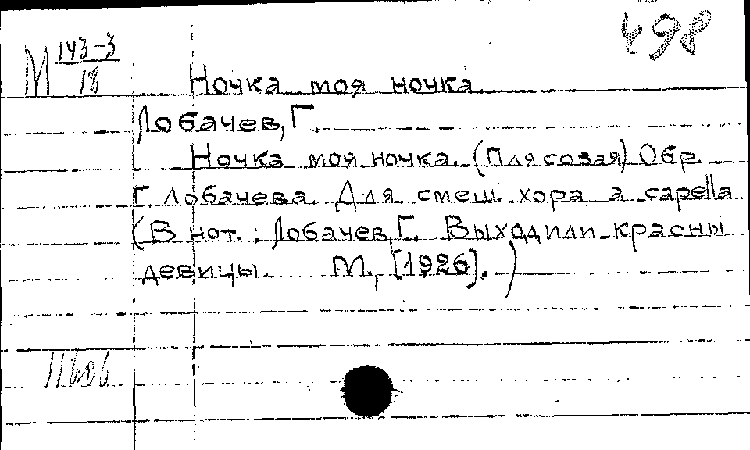 498
М 143-3/18
Ночка моя ночка.
Лобачев, Г.
Ночка моя ночка. (Плясовая) Обр.
Г. Лобачева. Для смеш. хора a capella
(В нот.: Лобачев, Г. Выходили красны
девицы. М., [1926].)